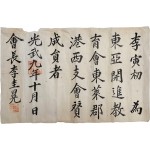 李寅初 爲
東亞開進敎
育會東萊郡
港西支會賛
成員者
光武九年十月日
會長李圭晃